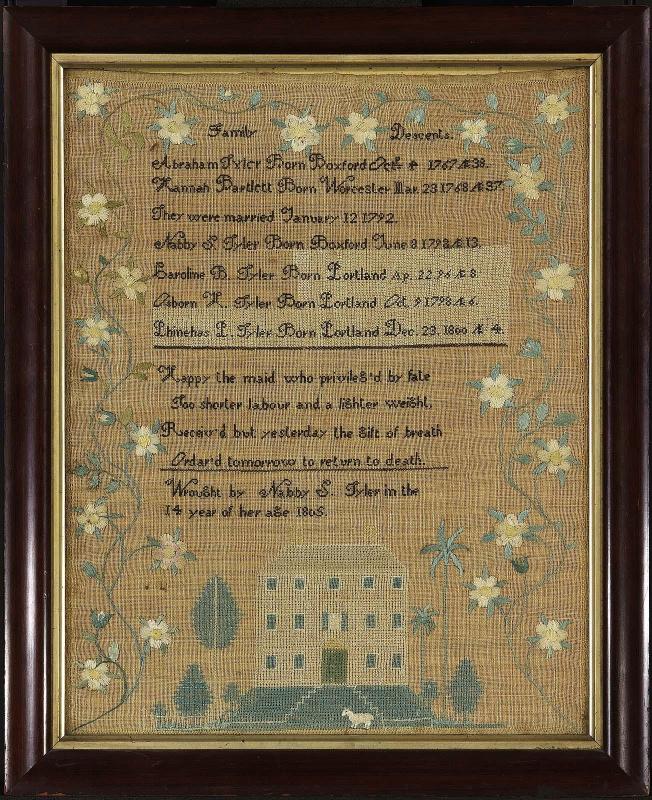 Family Descents.
Abraham Tyler Born Boxford Oct. 4 1767 Æ 38.
Hannah Bartlett Born Worcester Mar. 23 1768 Æ 37.
They were married January 12 1792.
Nabby S. Tyler Born Boxford June 8 1792 Æ 13.
Caroline B. Tyler Born Portland Ap. 22 96 Æ 8
Osborn K. Tyler Born Portland Oct. 9 1798 Æ 6.
Phinehas P. Tyler Born Portland Dec. 23. 1800 Æ 4.
Happy the maid who privileg'd by fate
Too shorter labour and a lighter weight,
Receiv'd but yesterday the gift of breath
Ordar'd tomorrow to return to death.
Wrought by Nabby S. Tyler in the
14 year of her age 1805.